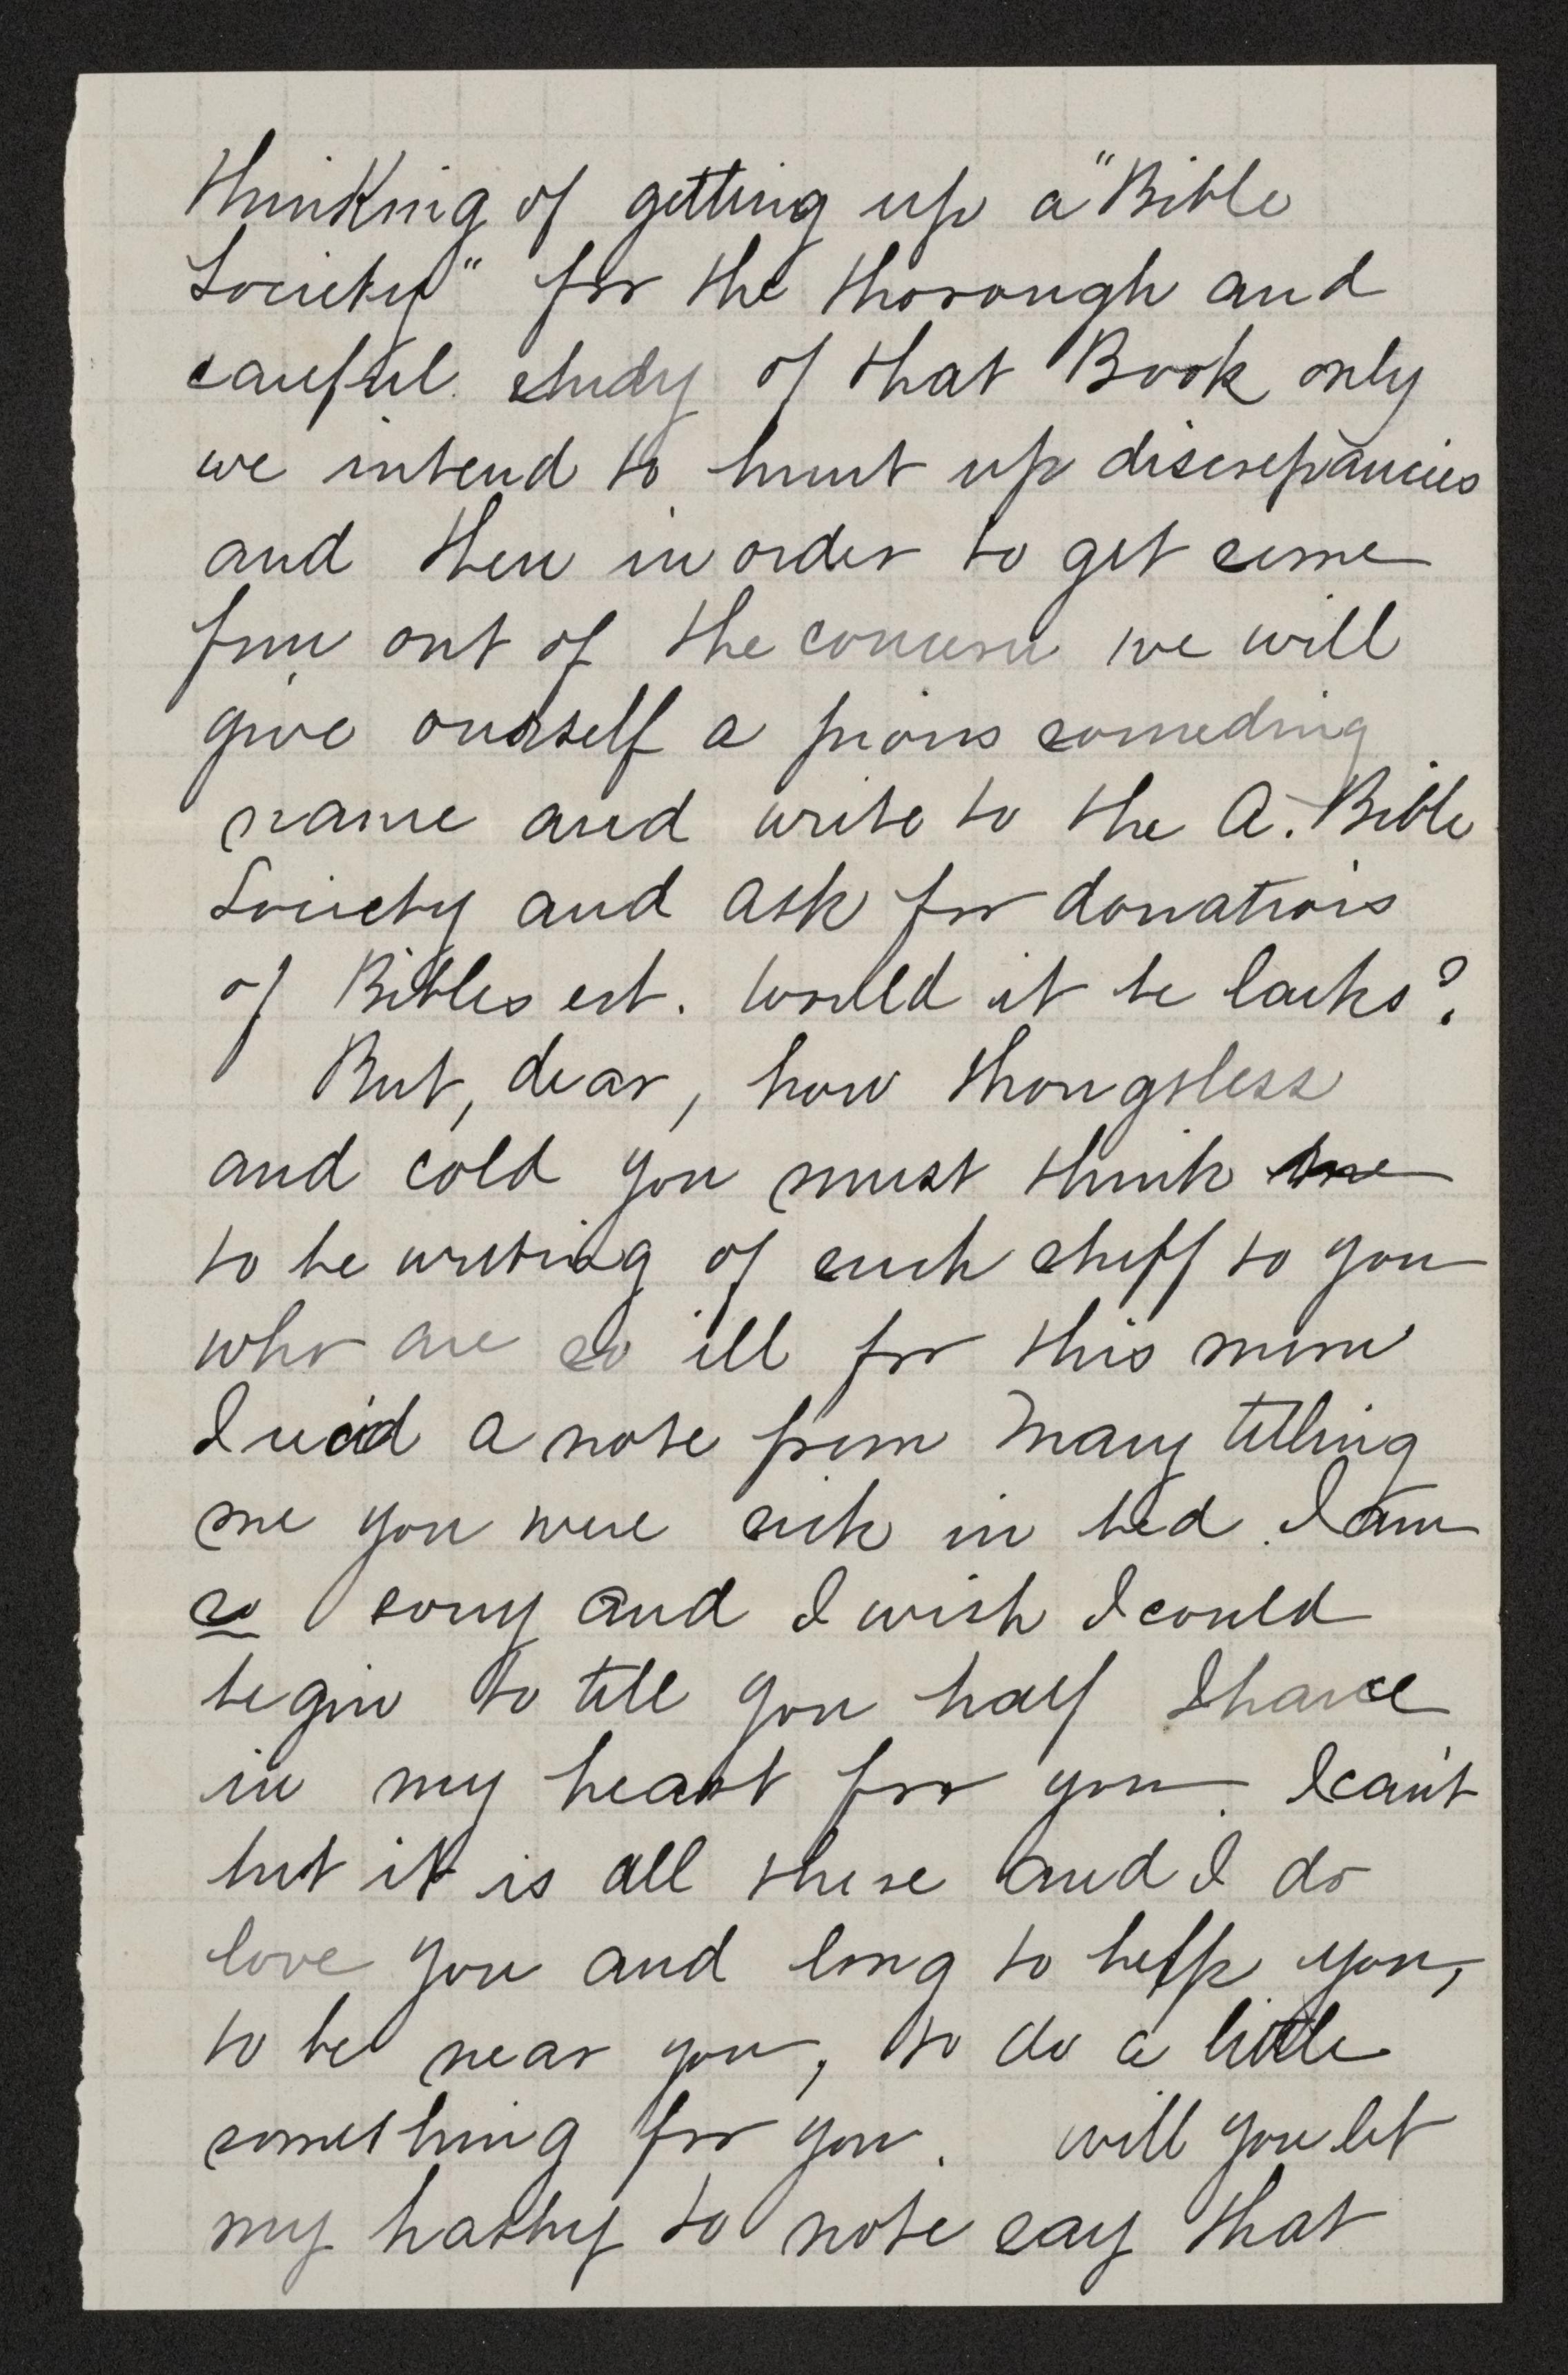 thinking of getting up a "Bible
Society" for the thorough and
careful study of that Book only
we intend to hunt up discrepancies
and then in order to get some
fun out of the concern we will
give ourself a pious someding
name and write to the A. Bible
Society and ask for donations
of Bibles ect. Would it be larks?
But, dear, how thougtless
and cold you must think me
to be writing of such stuff to you
who are so ill for this morn
I rec'd a note from Mary telling
me you were sick in bed. I am
so sorry and I wish I could
begin to tell you half I have
in my heart for you. I can't
but it is all there and I do
love you and long to help you,
to be near you, to do a little
something for you. Will you let
my hasty to note say that